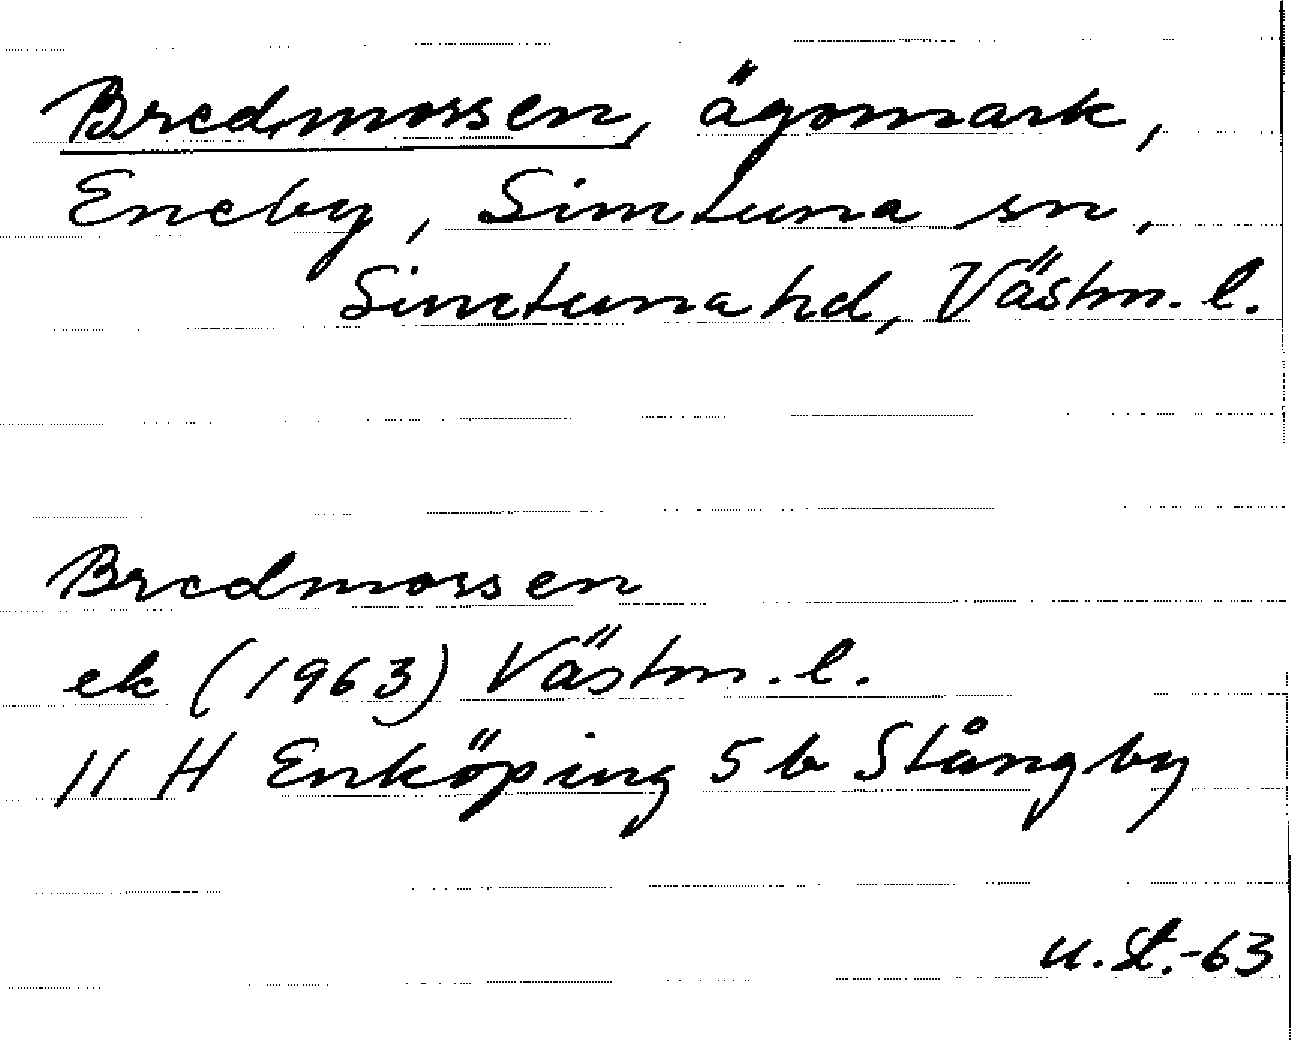 Bredmossen, ägomark,
Eneby, Simtuna sn,
Simtuna hd, Västm. l.
Bredmossen
ek (1963) Västm. l.
11 H Enköping 5 b Stångby
U. St.-63